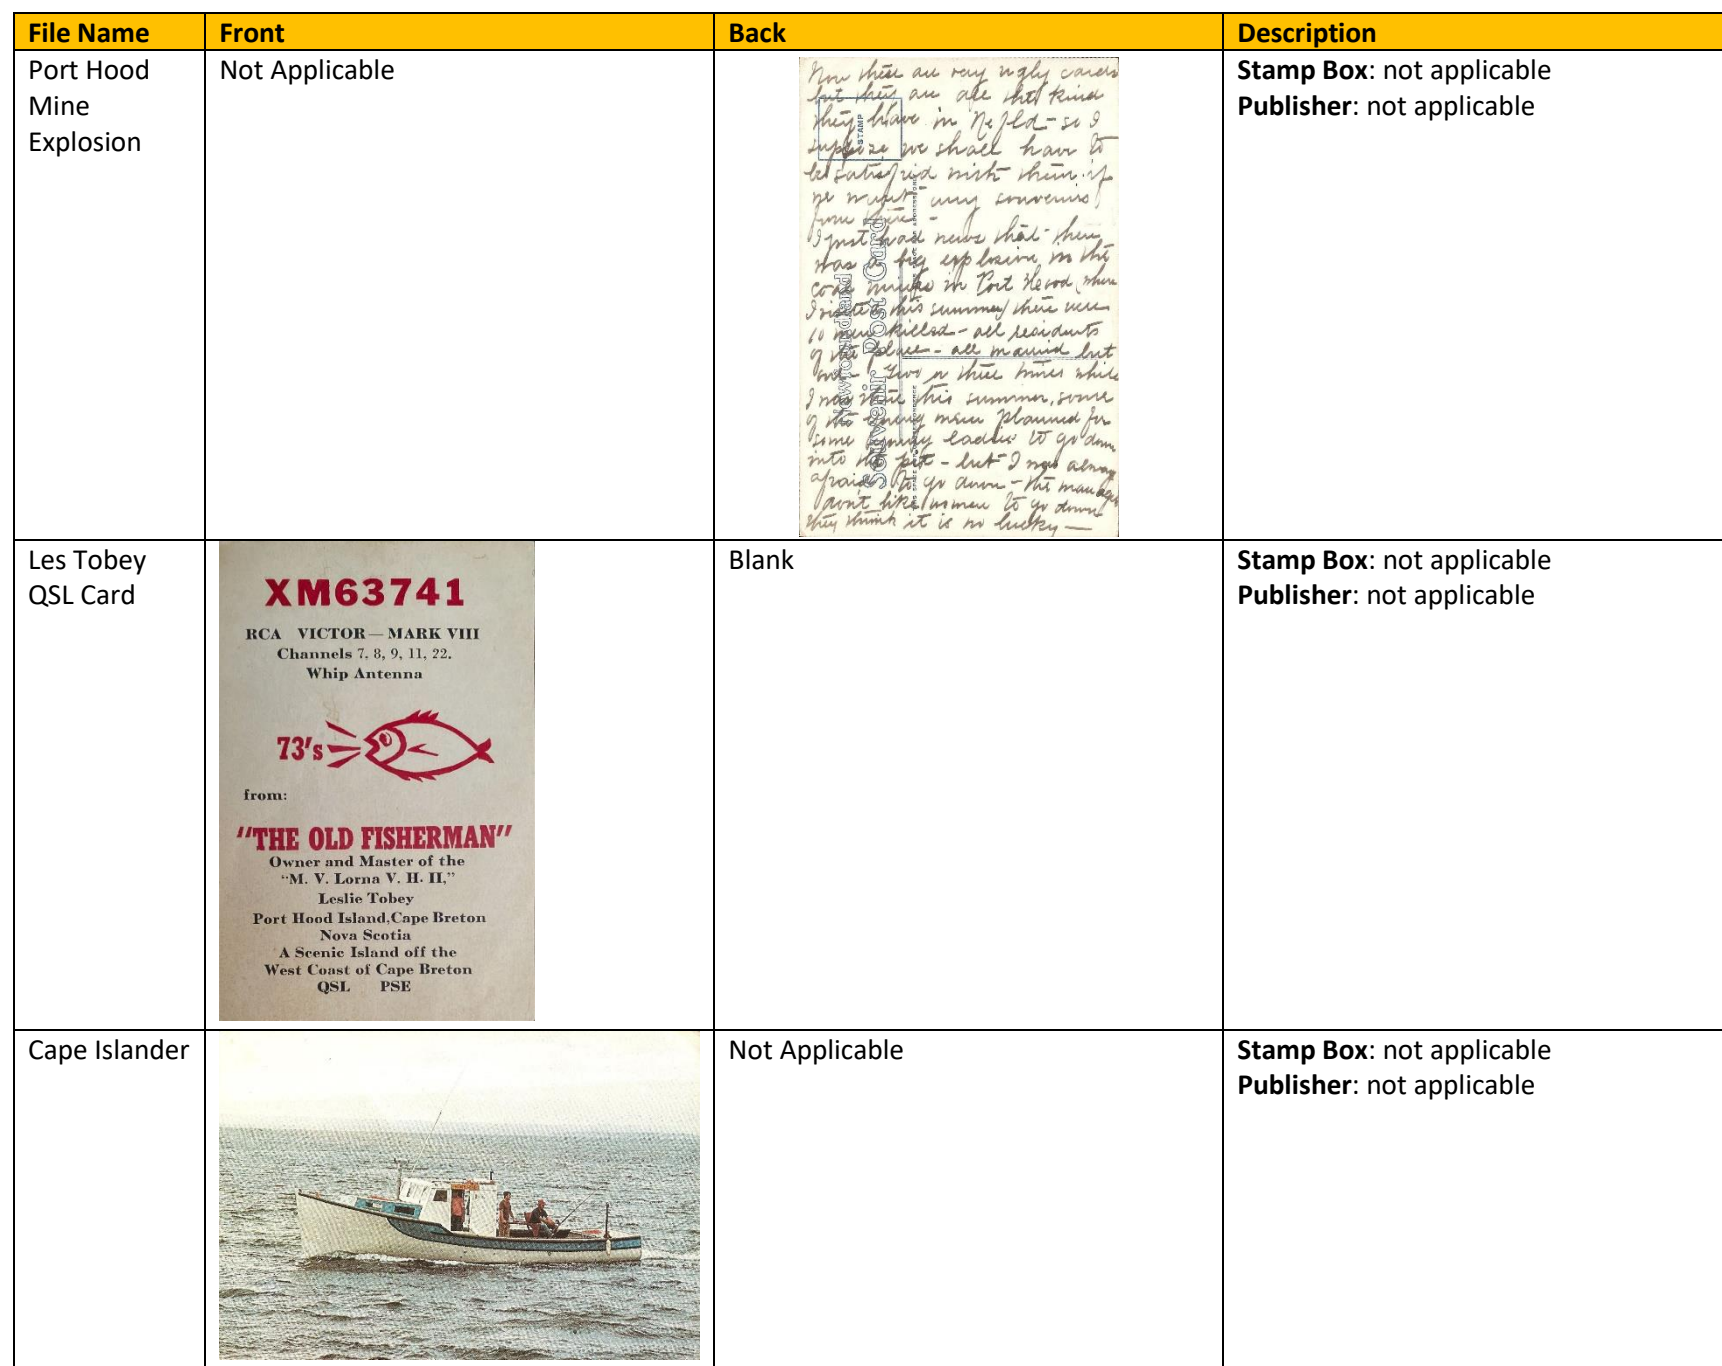 File Name
Front
Back
Description
Port Hood
Mine
Explosion
Not Applicable
Now these are very ugly cards
but they are all the kind
they have in Nefld - so I
suppose we shall have to
be satisfied with them if
we want any souvenirs
from here -
I just had news that there
was a big explosion in the
coal mines in Port Hood (where
I visited this summer) there were
10 men killed - all residents
of the place - all married but
one - Two or three times while
I was there this summer, some
of the young men planned for
some young ladies to go down
into the pit - but I was always
afraid to go down - the manager
don't like women to go down
they think it is no lucky -
STAMP
Newfoundland
Souvenir Post Card
Stamp Box: not applicable
Publisher: not applicable
Les Tobey
QSL Card
XM63741
RCA VICTOR — MARK VIII
Channels 7, 8, 9, 11, 22.
Whip Antenna
73's
from:
"THE OLD FISHERMAN"
Owner and Master of the
"M. V. Lorna V. H. II,"
Leslie Tobey
Port Hood Island, Cape Breton
Nova Scotia
A Scenic Island off the
West Coast of Cape Breton
QSL PSE
Blank
Stamp Box: not applicable
Publisher: not applicable
Cape Islander
Not Applicable
Stamp Box: not applicable
Publisher: not applicable